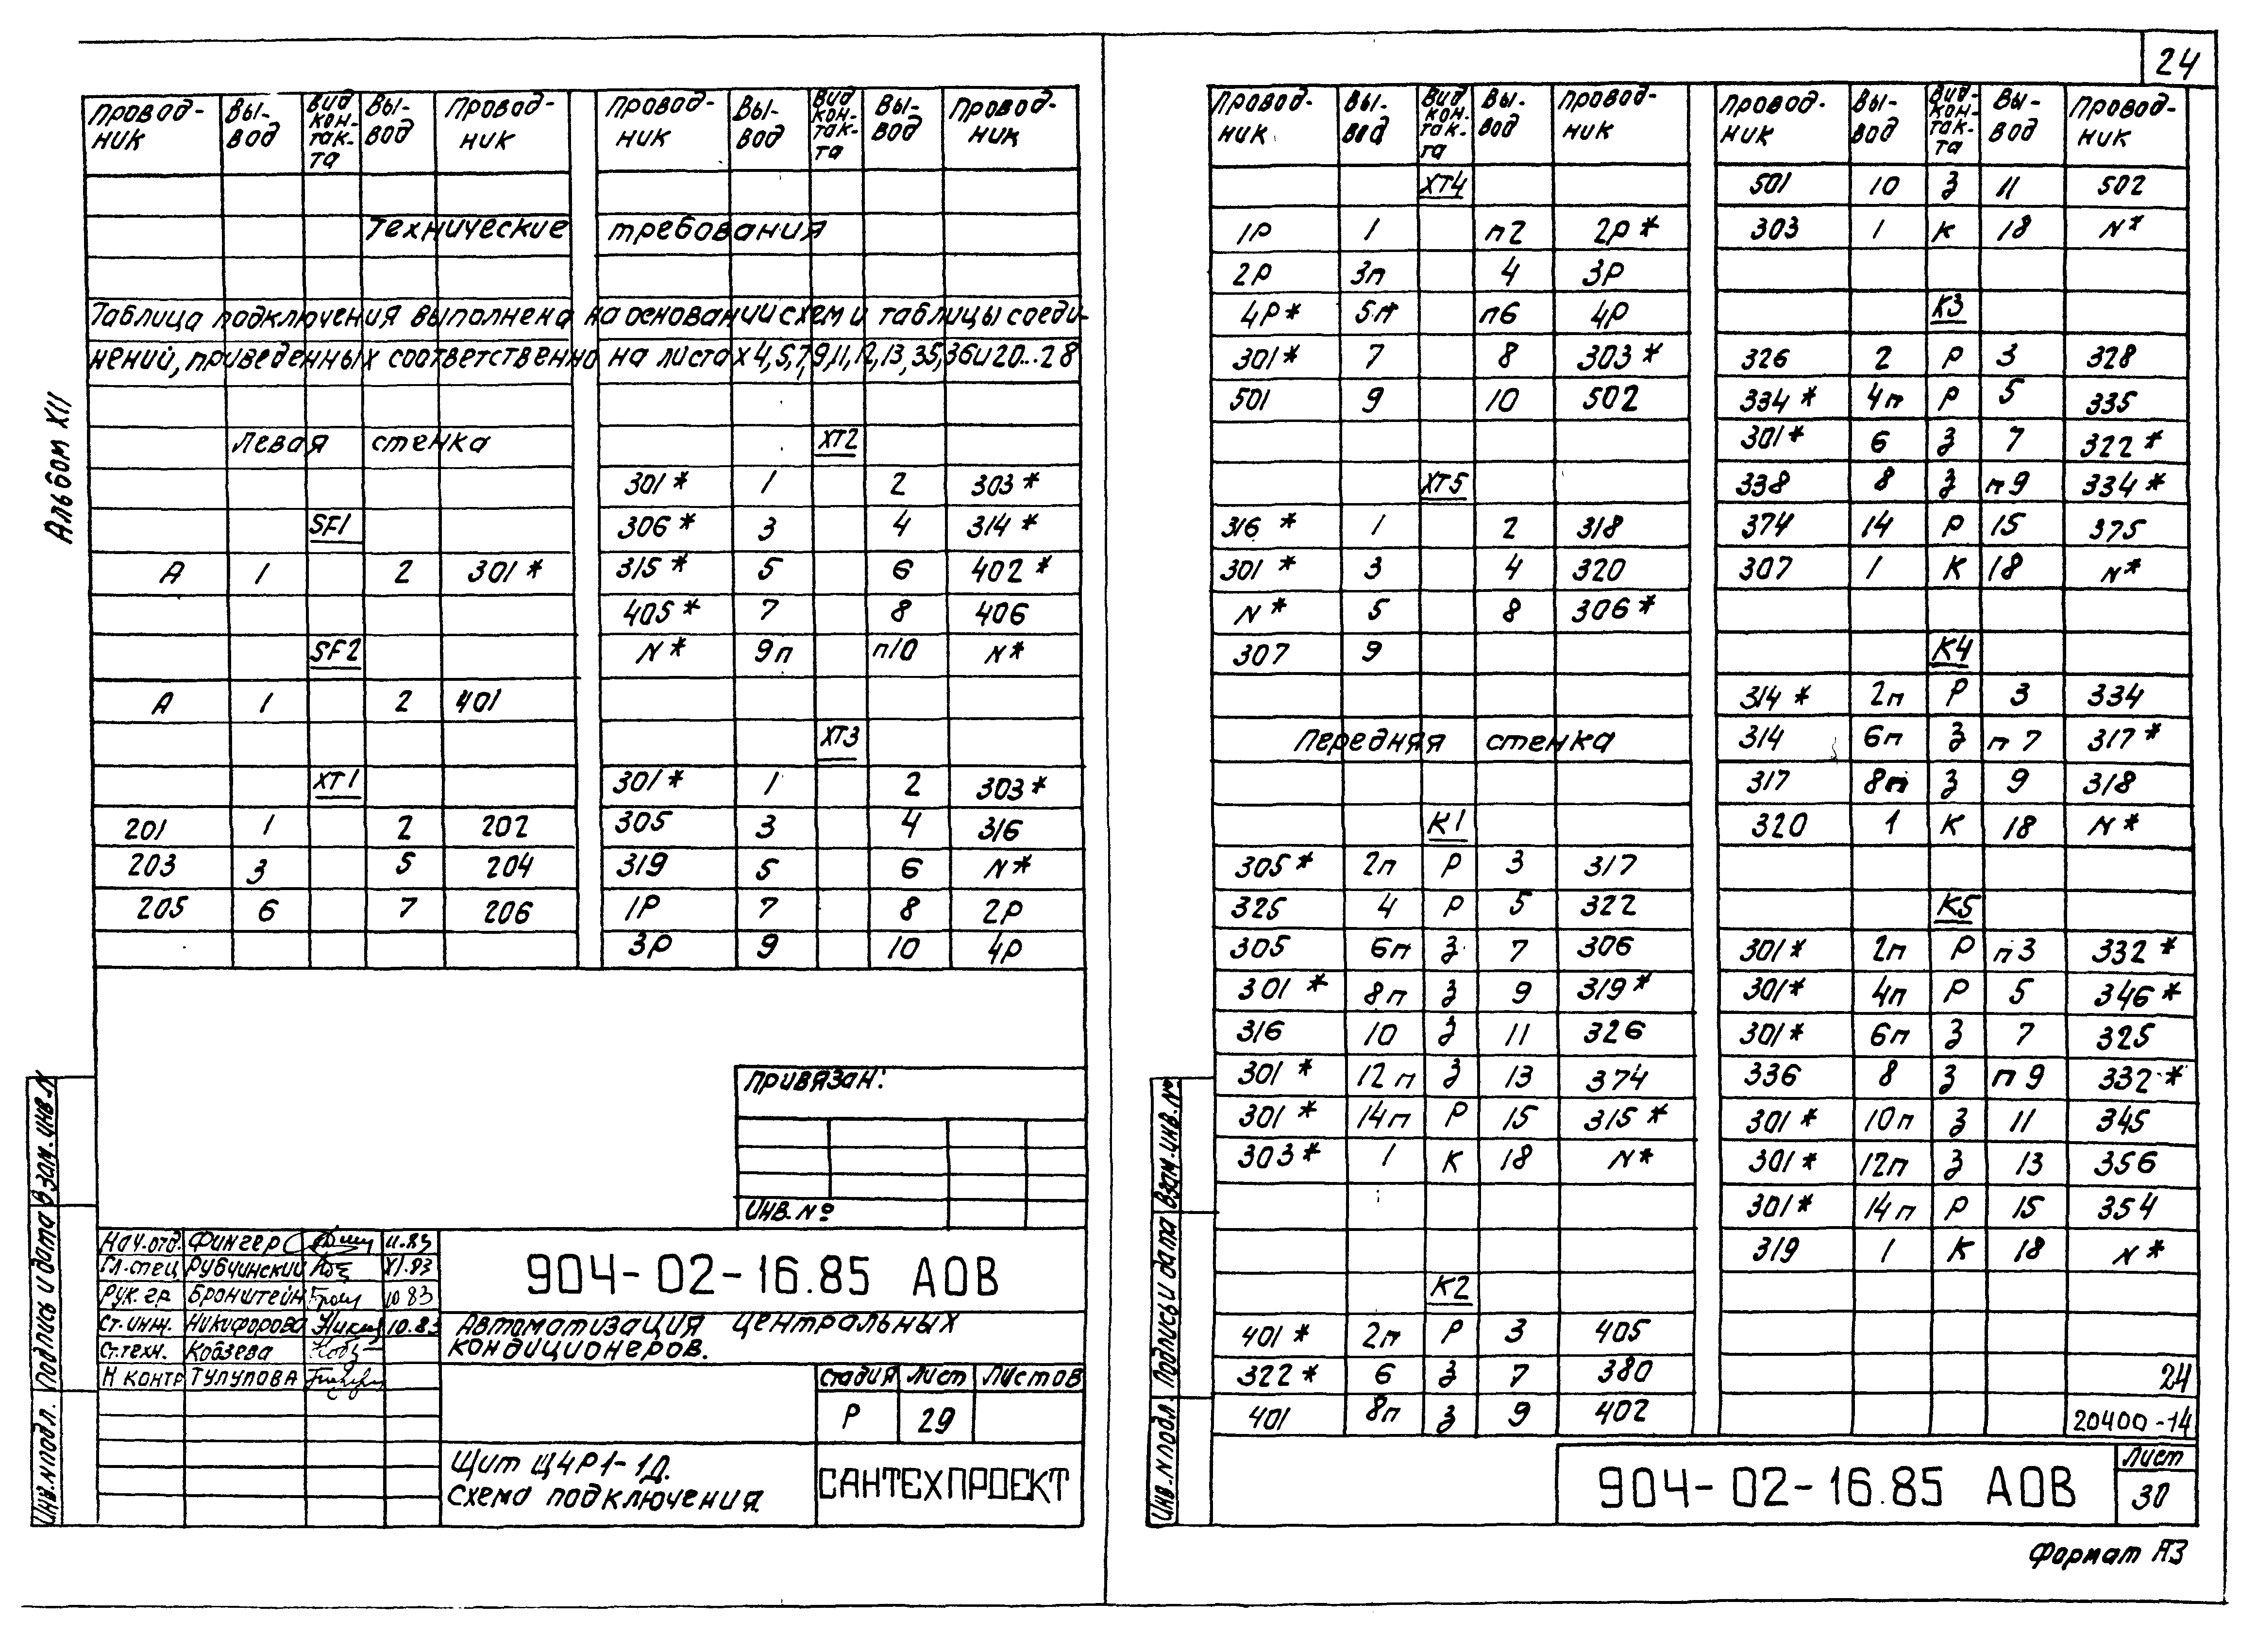 24
Альбом XII
Провод-ник Вы-вод Вид кон-так-та Вы-вод Провод-ник
Технические требования
Таблица подключения выполнена на основании схем и таблицы соеди-
нений, приведенных соответственно на листах 4,5,7,9,11,12,13,35,36 и 20...28
Левая стенка
SF1
А 1 2 301*
SF2
А 1 2 401
XT1
201 1 2 202
203 3 5 204
205 6 7 206
Провод-ник Вы-вод Вид кон-так-та Вы-вод Провод-ник
XT2
301* 1 2 303*
306* 3 4 314*
315* 5 6 402*
405* 7 8 406
N* 9п п10 N*
XT3
301* 1 2 303*
305 3 4 316
319 5 6 N*
1Р 7 8 2Р
3Р 9 10 4Р
Привязан:
Инв. №
Нач.отд. Фингер 11.83
Гл.спец Рубчинский XI.83
Рук. гр Бронштейн 10 83
Ст. инж. Никифорова 10.83
Ст.техн. Кобзева
Н контр Тулупова
904-02-16.85 АОВ
Автоматизация центральных
кондиционеров.
Стадия Лист Листов
Р 29
Щит Щ4Р1-1Д.
Схема подключения
САНТЕХПРОЕКТ
Инв. N подл. Подпись и дата Взам. инв. N
Провод-ник Вы-вод Вид кон-так-та Вы-вод Провод-ник
XT4
1Р 1 п2 2Р*
2Р 3п 4 3Р
4Р* 5п п6 4Р
301* 7 8 303*
501 9 10 502
XT5
316* 1 2 318
301* 3 4 320
N* 5 8 306*
307 9
Передняя стенка
К1
305* 2п Р 3 317
325 4 Р 5 322
305 6п З 7 306
301* 8п З 9 319*
316 10 З 11 326
301* 12п З 13 374
301* 14п Р 15 315*
303* 1 К 18 N*
К2
401* 2п Р 3 405
322* 6 З 7 380
401 8п З 9 402
Провод-ник Вы-вод Вид-кон-так-та Вы-вод Провод-ник
501 10 З 11 502
303 1 К 18 N*
К3
326 2 Р 3 328
334* 4п Р 5 335
301* 6 З 7 322*
338 8 З п9 334*
374 14 Р 15 375
307 1 К 18 N*
К4
314* 2п Р 3 334
314 6п З п7 317*
317 8п З 9 318
320 1 К 18 N*
К5
301* 2п Р п3 332*
301* 4п Р 5 346*
301* 6п З 7 325
336 8 З п9 332*
301* 10п З 11 345
301* 12п З 13 356
301* 14п Р 15 354
319 1 К 18 N*
24
20400-14
Инв. N подл. Подпись и дата Взам. инв. №
904-02-16.85 АОВ
Лист
30
Формат А3